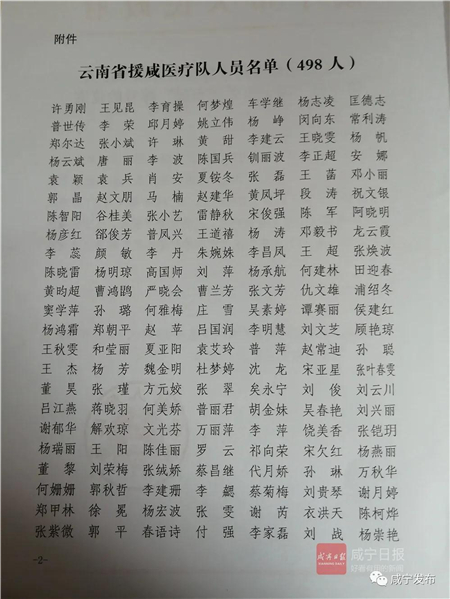 附件
云南省援咸医疗队人员名单（498人）
许勇刚 王见昆 李育操 何梦煌 车学继 杨志凌 匡德志
普世传 李荣 邱月婷 姚立伟 杨峥 闵向东 常利涛
郑尔达 张小斌 许琳 黄甜 李建云 王晓雯 杨帆
杨云斌 唐丽 李波 陈国兵 钏丽波 李正超 安娜
袁颖 袁兵 肖安 夏铵冬 张磊 王菡 邓小丽
郭晶 赵文朋 马楠 赵建华 黄凤坪 段涛 祝文银
陈智阳 谷桂美 张小艺 雷静秋 宋俊强 陈军 阿晓明
杨彦红 邰俊芳 普凤兴 王道禧 杨涛 邓毅书 龙云霞
李蕊 颜敏 李丹 朱婉姝 李昌凤 王超 张焕波
陈晓雷 杨明琼 高国师 刘萍 杨承航 何建林 田迎春
黄昀超 曹鸿鹍 严晓会 曹兰芳 张文芳 仇文雄 浦绍冬
窦学萍 孙璐 何雅梅 庄雪 吴素婷 谭赛丽 侯建红
杨鸿霜 郑朝平 赵苹 吕国润 李明慧 刘文芝 顾艳琼
王秋雯 和莹丽 夏亚阳 袁艾玲 普萍 赵常迪 孙聪
王杰 杨芳 魏金明 杜梦婷 沈龙 宋亚星 张叶春雯
董昊 张瑾 方元姣 张翠 矣永宁 刘俊 刘云川
吕江燕 蒋晓羽 何美娇 普丽君 胡金妹 吴春艳 刘兴丽
谢郁华 解欢琼 文光芬 万丽萍 李萍 饶美香 张铠玥
杨瑞丽 王阳 陈佳丽 罗云 祁向荣 宋欠红 杨燕丽
董黎 刘荣梅 张绒娇 蔡昌继 代月娇 孙琳 万秋华
何姗姗 郭秋哲 李建珊 李勰 蔡菊梅 刘贵琴 谢月婷
郑甲林 徐冕 杨宏波 张雯 谢芮 衣洪天 陈柯烨
张紫微 郭平 春语诗 付强 李家磊 刘战 杨崇艳
-2-
咸宁日报 咸宁日报
咸宁发布